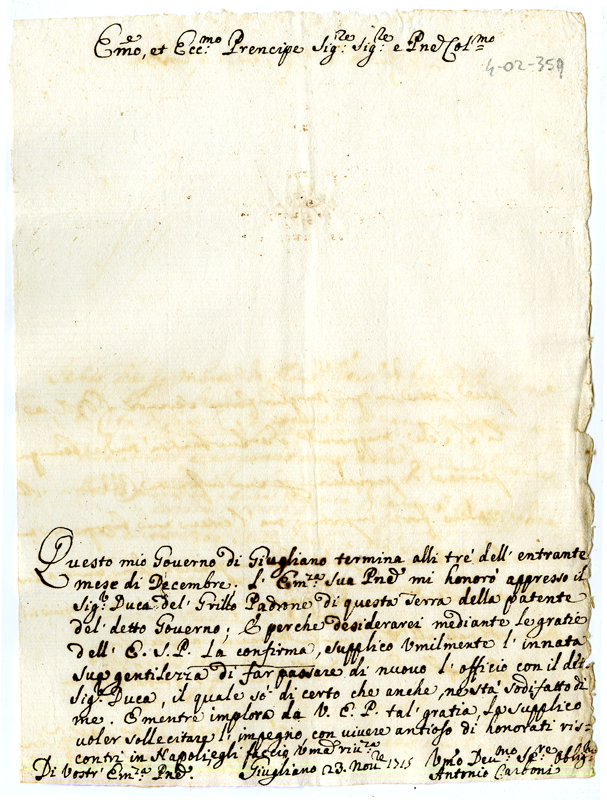 Em̃o, et Ecc:mo Prencipe Sig:re Sig:re e Pñe Col:mo
4-02-359
Questo mio Governo di Giugliano termina alli tre' dell' entrante
mese di Decembre. L' Em:za Sua Pñe mi honorò appresso il
Sig:r Duca del' Grillo Padrone di questa Terra della patente
del' detto Governo; E perche desiderarei mediante le gratie
dell' E. S. P. La confirma, supplico Vmilmente l' innata
sua gentilezza di far passare di nuovo l' officio con il de:
Sig:r Duca, il quale sò di certo che anche, ne stà sodisfatto di
me. E mentre implora da V. E. P. tal' gratia, La supplico
voler sollecitare l' impegno, con vivere antioso di honorati ris-
contri in Napoli, e gli faccio Vm:a riu:za
Di Vostr' Em:za Pñe. Giugliano 23. Nov:re 1715 Vmo Deu:mo Sre Oblig:
Antonio Carboni